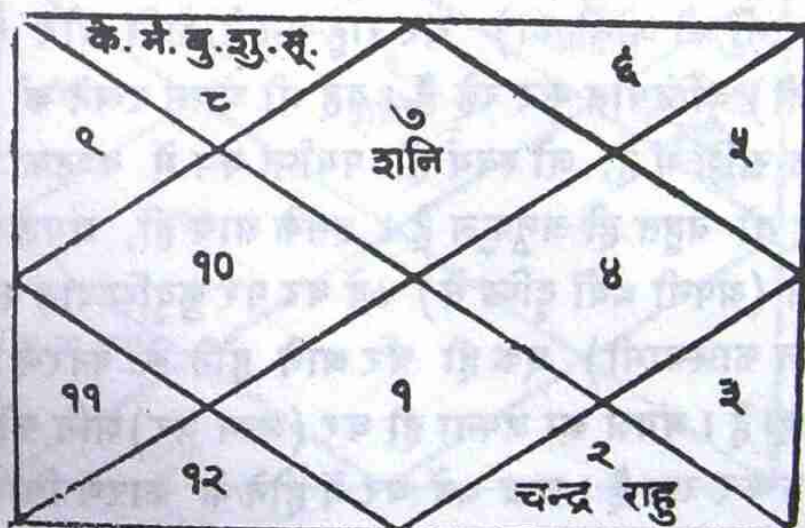 के. मं. बु. शु. सू.
८
६
९
७
शनि
५
१०
४
११
१
३
१२
२
चन्द्र राहु